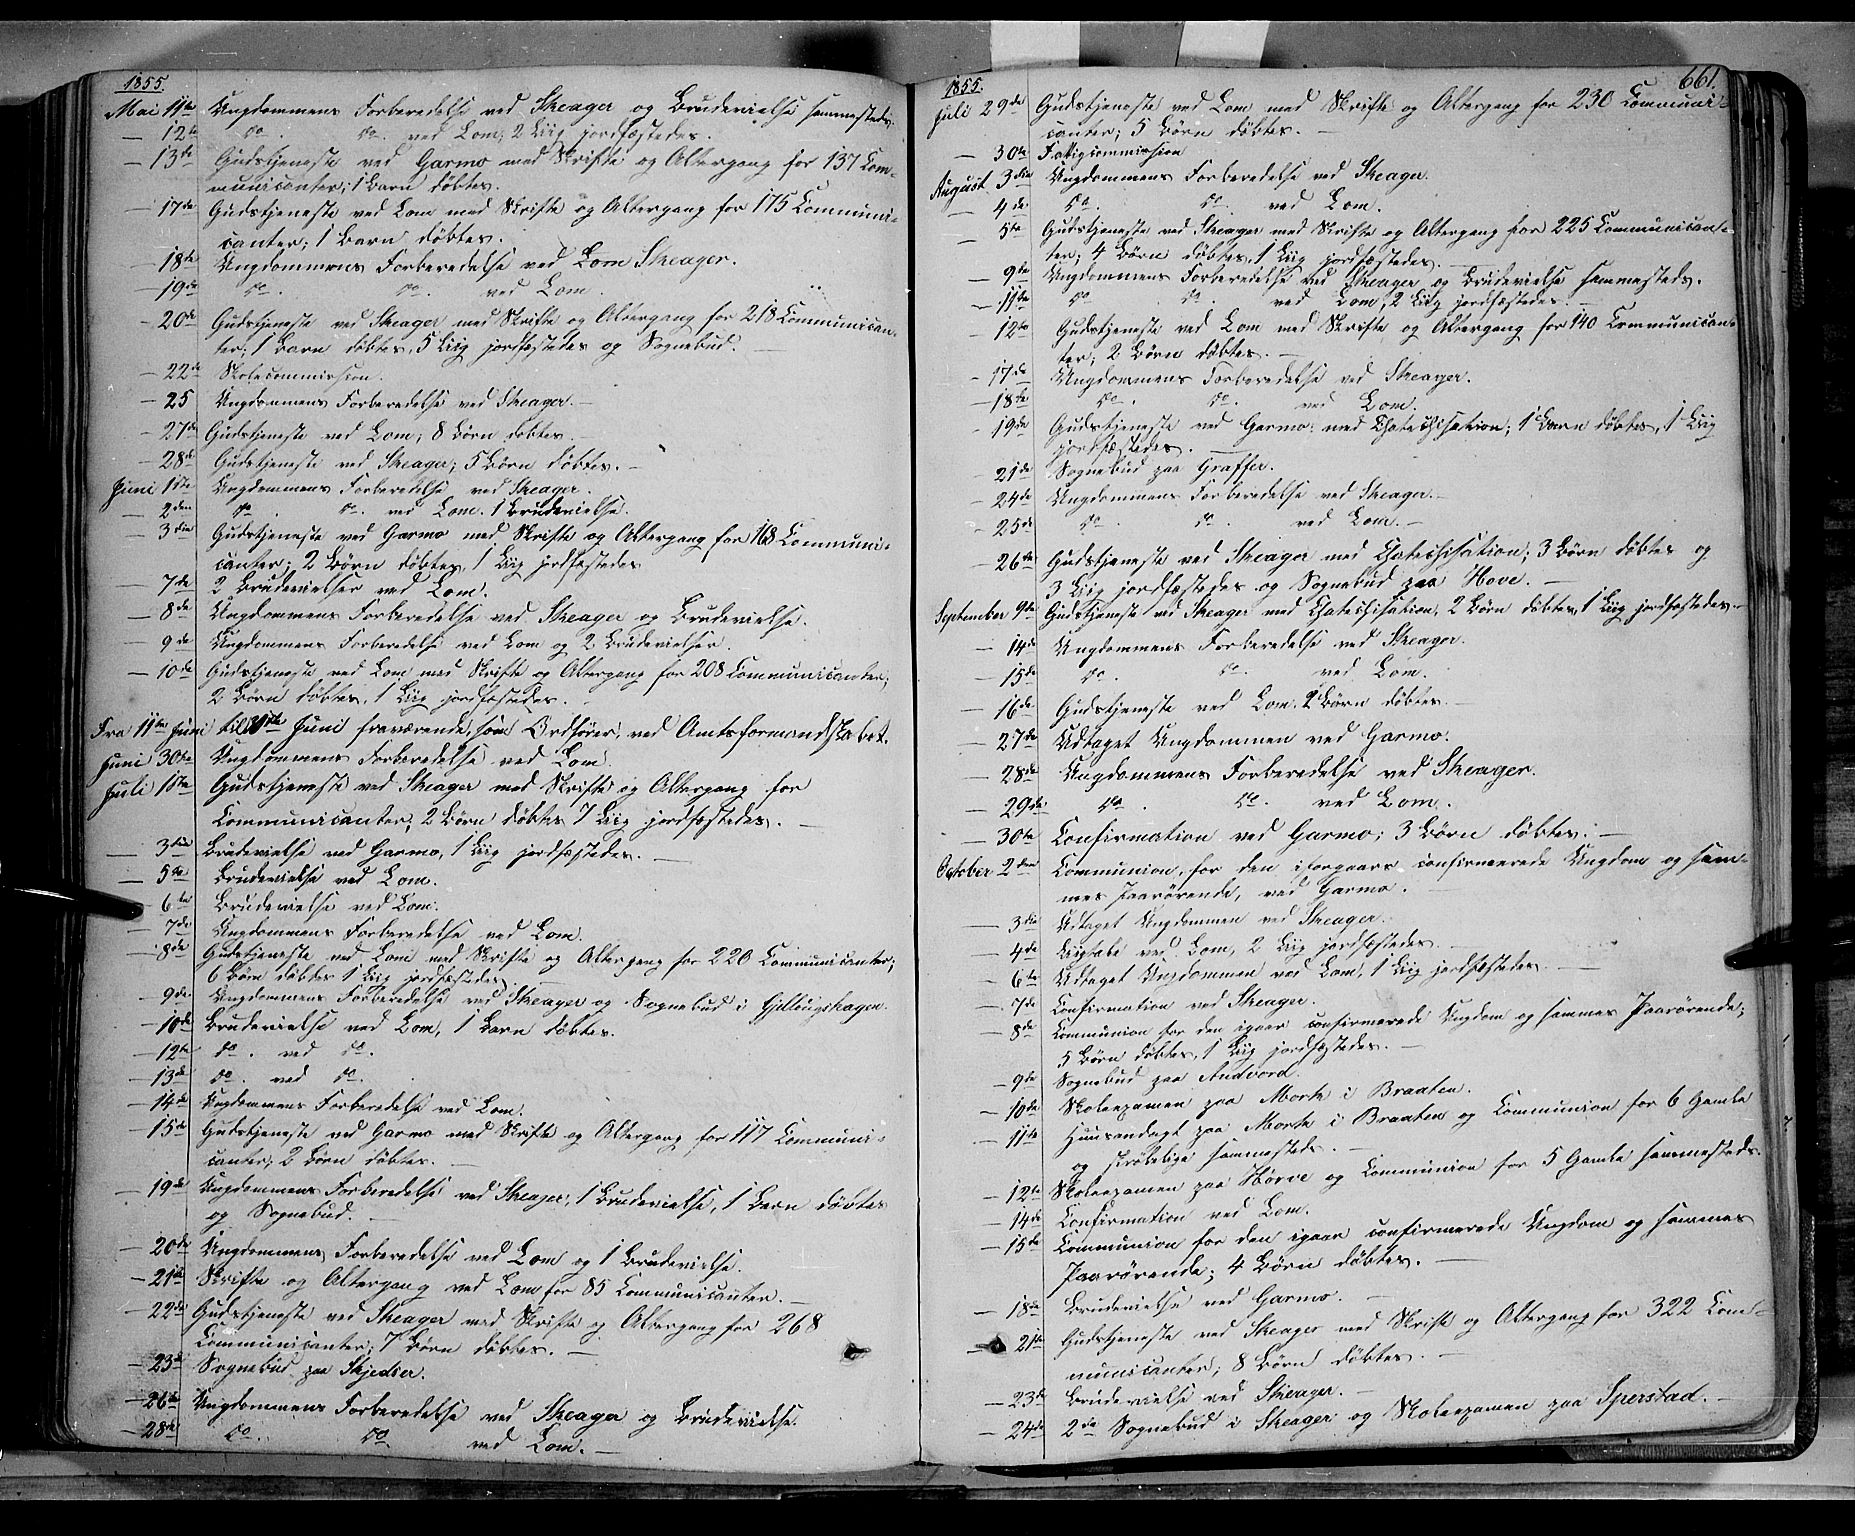 1855.
Mai 11te Ungdommens Forberedelse ved Skeager og Brudevielse sammesteds.
— 12te do. do. ved Lom, 2 Liig jordfæstedes.
— 13de Gudstjeneste ved Garmo med Skrifte og Altergang for 137 Com-
municanter; 1 Barn døbtes.
— 17de Gudstjeneste ved Lom med Skrifte og Altergang for 175 Communi-
canter; 1 Barn døbtes.
— 18de Ungdommens Forberedelse ved Lom Skeager.
— 19de do. do. ved Lom.
— 20de Gudstjeneste ved Skeager med Skrifte og Altergang for 218 Communican-
ter; 1 Barn døbtes, 5 Liig jordfæstedes og Sognebud. —
— 22de Skolecommission.
— 25 Ungdommens Forberedelse ved Skeager. —
— 27de Gudstjeneste ved Lom; 8 Børn døbtes. —
— 28de Gudstjeneste ved Skeager; 5 Børn døbtes. —
Juni 1ste Ungdommens Forberedelse ved Skeager.
— 2den do. do. ved Lom. 1 Brudevielse.
— 3die Gudstjeneste ved Garmo med Skrifte og Altergang for 168 Communi-
canter; 2 Børn døbtes, 1 Liig jordfæstedes
— 7de 2 Brudevielser ved Lom.
— 8de Ungdommens Forberedelse ved Skeager og Brudevielse.
9de Ungdommens Forberedelse ved Lom og 2 Brudevielser.
— 10de Gudstjeneste ved Lom med Skrifte og Altergang for 208 Communicanter;
2 Børn døbtes, 1 Liig jordfæstedes. —
Fra 11te Juni til Juni fraværende, som Ordfører, ved Amtsformandskabet.
Juni 30te Ungdommens Forberedelse ved Lom.
Juli 1ste Gudstjeneste ved Skeager med Skrifte og Altergang for
Communicanter, 2 Børn døbtes 7 Liig jordfæstedes. —
— 3die Brudevielse ved Garmo, 1 Liig jordfæstedes. —
— 5te Brudevielse ved Lom.
— 6te Brudevielse ved Lom.
— 7de Ungdommens Forberedelse ved Lom.
— 8de Gudstjeneste ved Lom med Skrifte og Altergang for 220 Communicanter;
6 Børn døbtes 1 Liig jordfæstedes. —
— 9de Ungdommens Forberedelse ved Skeager og Sognebud i
— 10de Brudevielse ved Lom, 1 Barn døbtes.
— 12te do. ved do.
— 13de do. ved do.
— 14de Ungdommens Forberedelse ved Lom.
— 15de Gudstjeneste ved Garmo med Skrifte og Altergang for 117 Communi-
canter; 2 Børn døbtes. —
— 19de Ungdommens Forberedelse ved Skeager, 1 Brudevielse, 1 Barn døbtes
og Sognebud. —
— 20de Ungdommens Forberedelse ved Lom og 1 Brudevielse.
— 21de Skrifte og Altergang ved Lom for 85 Communicanter. —
— 22de Gudstjeneste ved Skeager med Skrifte og Altergang for 268
Communicanter; 7 Børn døbtes. —
— 23de Sognebud paa Skjedser.
— 26de Ungdommens Forberedelse ved Skeager og Brudevielse.
— 28de do. do. ved Lom. —
1855. 661.
Juli 29de Gudstjeneste ved Lom med Skrifte og Altergang for 230 Communi-
canter; 5 Børn døbtes. —
— 30te Fattigcommission
August 3die Ungdommens Forberedelse ved Skeager.
— 4de do. do. ved Lom.
— 5te Gudstjeneste ved Skeager med Skrifte og Altergang for 225 Communican-
ter; 4 Børn døbtes, 1 Liig jordfæstedes. —
— 9de Ungdommens Forberedelse ved Skeager og Brudevielse sammesteds.
— 11te do. do. ved Lom, 2 Liig jordfæstedes. —
— 12te Gudstjeneste ved Lom med Skrifte og Altergang for 140 Communican-
ter; 2 Børn døbtes. —
— 17de Ungdommens Forberedelse ved Skeager.
— 18de do. do. ved Lom.
— 19de Gudstjeneste ved Garmo med Chatechisation; 1 Barn døbtes, 1 Liig
jordfæstedes. —
— 21de Sognebud paa Graffer.
— 24de Ungdommens Forberedelse ved Skeager —
— 25de do. do. ved Lom. —
— 26te Gudstjeneste ved Skeager med Chatechisation; 3 Børn døbtes og
3 Liig jordfæstedes og Sognebud paa Hove. —
September 9de Gudstjeneste ved Skeager med Chatechisation, 2 Børn døbtes, 1 Liig jordfæstedes.
— 14de Ungdommens Forberedelse ved Skeager.
— 15de do. do. ved Lom.
— 16de Gudstjeneste ved Lom. 2 Børn døbtes. —
— 27de Udtaget Ungdommen ved Garmo.
— 28de Ungdommens Forberedelse ved Skeager.
— 29de do. do. ved Lom.
— 30te Confirmation ved Garmo; 3 Børn døbtes. —
October 2den Communion, for den iforgaars confirmerede Ungdom og sam-
mes Paarørende, ved Garmo. —
— 3die Udtaget Ungdommen ved Skeager. —
— 4de ved Lom, 2 Liig jordfæstedes. —
— 6te Udtaget Ungdommen ved Lom, 1 Liig jordfæstedes. —
— 7de Confirmation ved Skeager.
— 8de Communion for den igaar confirmerede Ungdom og sammes Paarørende;
5 Børn døbtes, 1 Liig jordfæstedes. —
— 9de Sognebud paa Andvord.
— 10de Skoleexamen paa Mork i Braaten.
— 11te Huusandagt paa Mork i Braaten og Communion for 6 Gamle
og skrøbelige sammesteds. —
— 12te Skoleexamen paa Hørve og Communion for 5 Gamle sammesteds.
— 14de Confirmation ved Lom.
— 15de Communion for den igaar confirmerede Ungdom og sammes
Paarørende; 4 Børn døbtes. —
— 18de Brudevielse ved Garmo. —
— 21de Gudstjeneste ved Skeager med Skrifte og Altergang for 322 Com-
municanter; 8 Børn døbtes. —
— 23de Brudevielse ved Skeager. —
— 24de 2de Sognebud i Skeager og Skoleexamen paa Sperstad. —